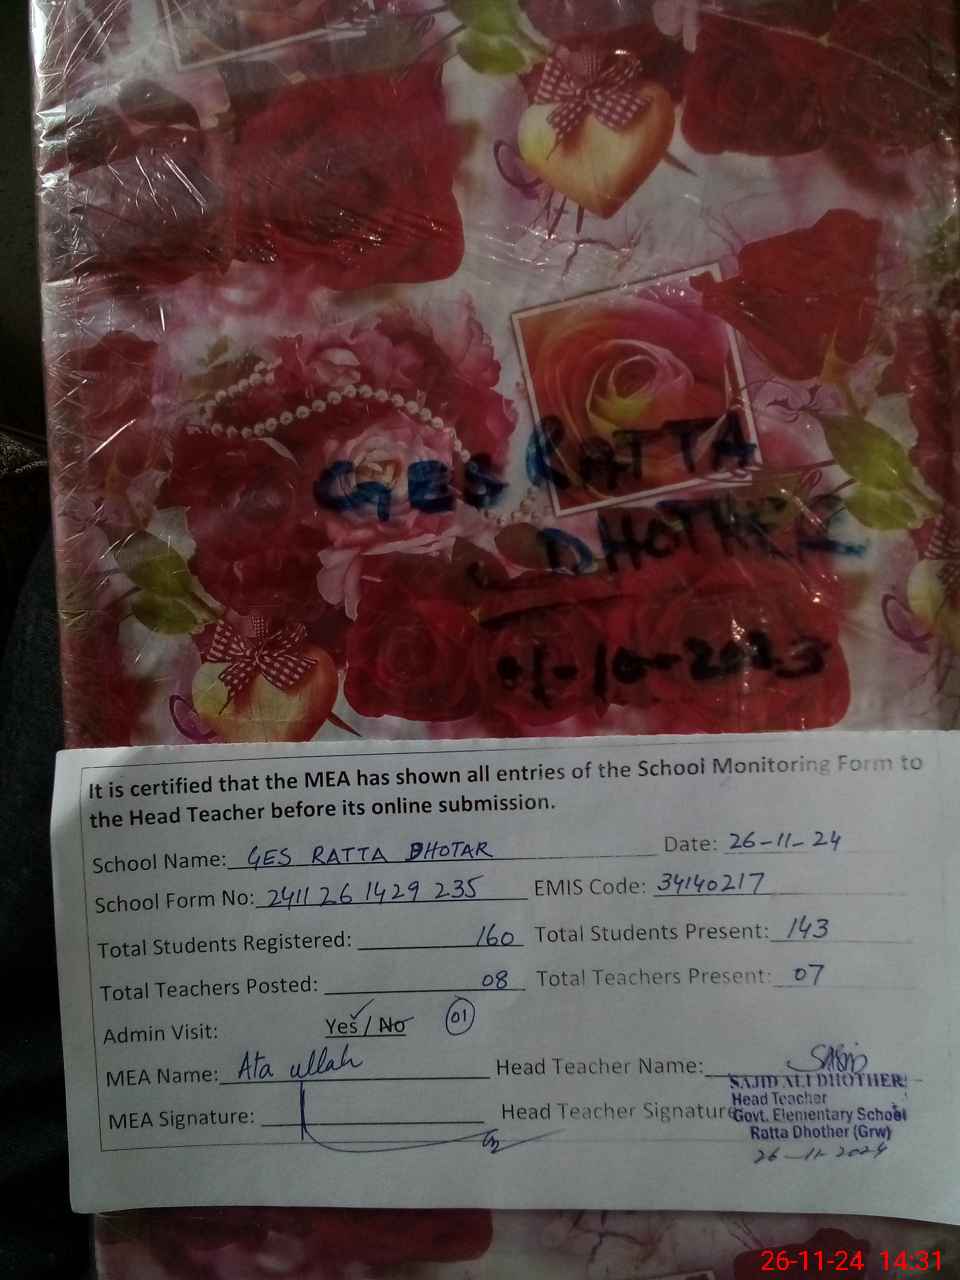 GES RATTA
DHOTHER
01-10-2023
It is certified that the MEA has shown all entries of the School Monitoring Form to
the Head Teacher before its online submission.
School Name: GES RATTA DHOTAR Date: 26-11-24
School Form No: 2411 26 1429 235 EMIS Code: 34140217
Total Students Registered: 160 Total Students Present: 143
Total Teachers Posted: 08 Total Teachers Present: 07
Admin Visit: Yes / No 01
MEA Name: Ata ullah Head Teacher Name:
MEA Signature: Head Teacher Signature
SAJID ALI DHOTHER
Head Teacher
Govt. Elementary School
Ratta Dhother (Grw)
26-11-2024
26-11-24 14:31